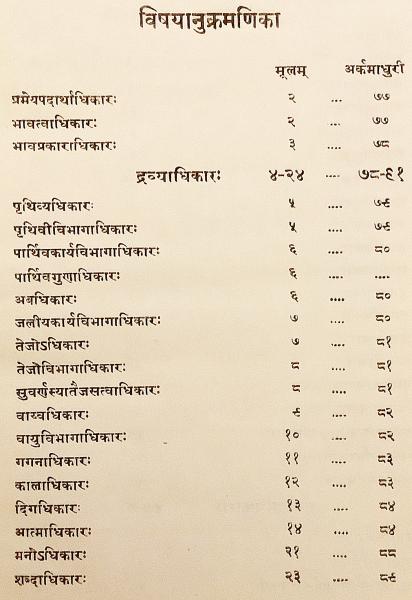 विषयानुक्रमणिका
मूलम् अर्कमाधुरी
प्रमेयपदार्थाधिकारः २ ... ७७
भावत्वाधिकारः २ ... ७७
भावप्रकाराधिकारः ३ ... ७८
द्रव्याधिकारः ४-२४ .... ७८-९१
पृथिव्यधिकारः ५ .... ७९
पृथिवीविभागाधिकारः ५ .... ७९
पार्थिवकार्यविभागाधिकारः ६ .... ८०
पार्थिवगुणाधिकारः ६ .... ....
अबधिकारः ६ .... ८०
जलीयकार्यविभागाधिकारः ७ .... ८०
तेजोऽधिकारः ७ .... ८१
तेजोविभागाधिकारः ८ .... ८१
सुवर्णस्यातैजसत्वाधिकारः ८ .... ८१
वाय्वधिकारः ९ .... ८२
वायुविभागाधिकारः १० .... ८२
गगनाधिकारः ११ .... ८३
कालाधिकारः १२ .... ८३
दिगधिकारः १३ .... ८४
आत्माधिकारः १४ .... ८४
मनोऽधिकारः २१ .... ८८
शब्दाधिकारः २३ .... ८९